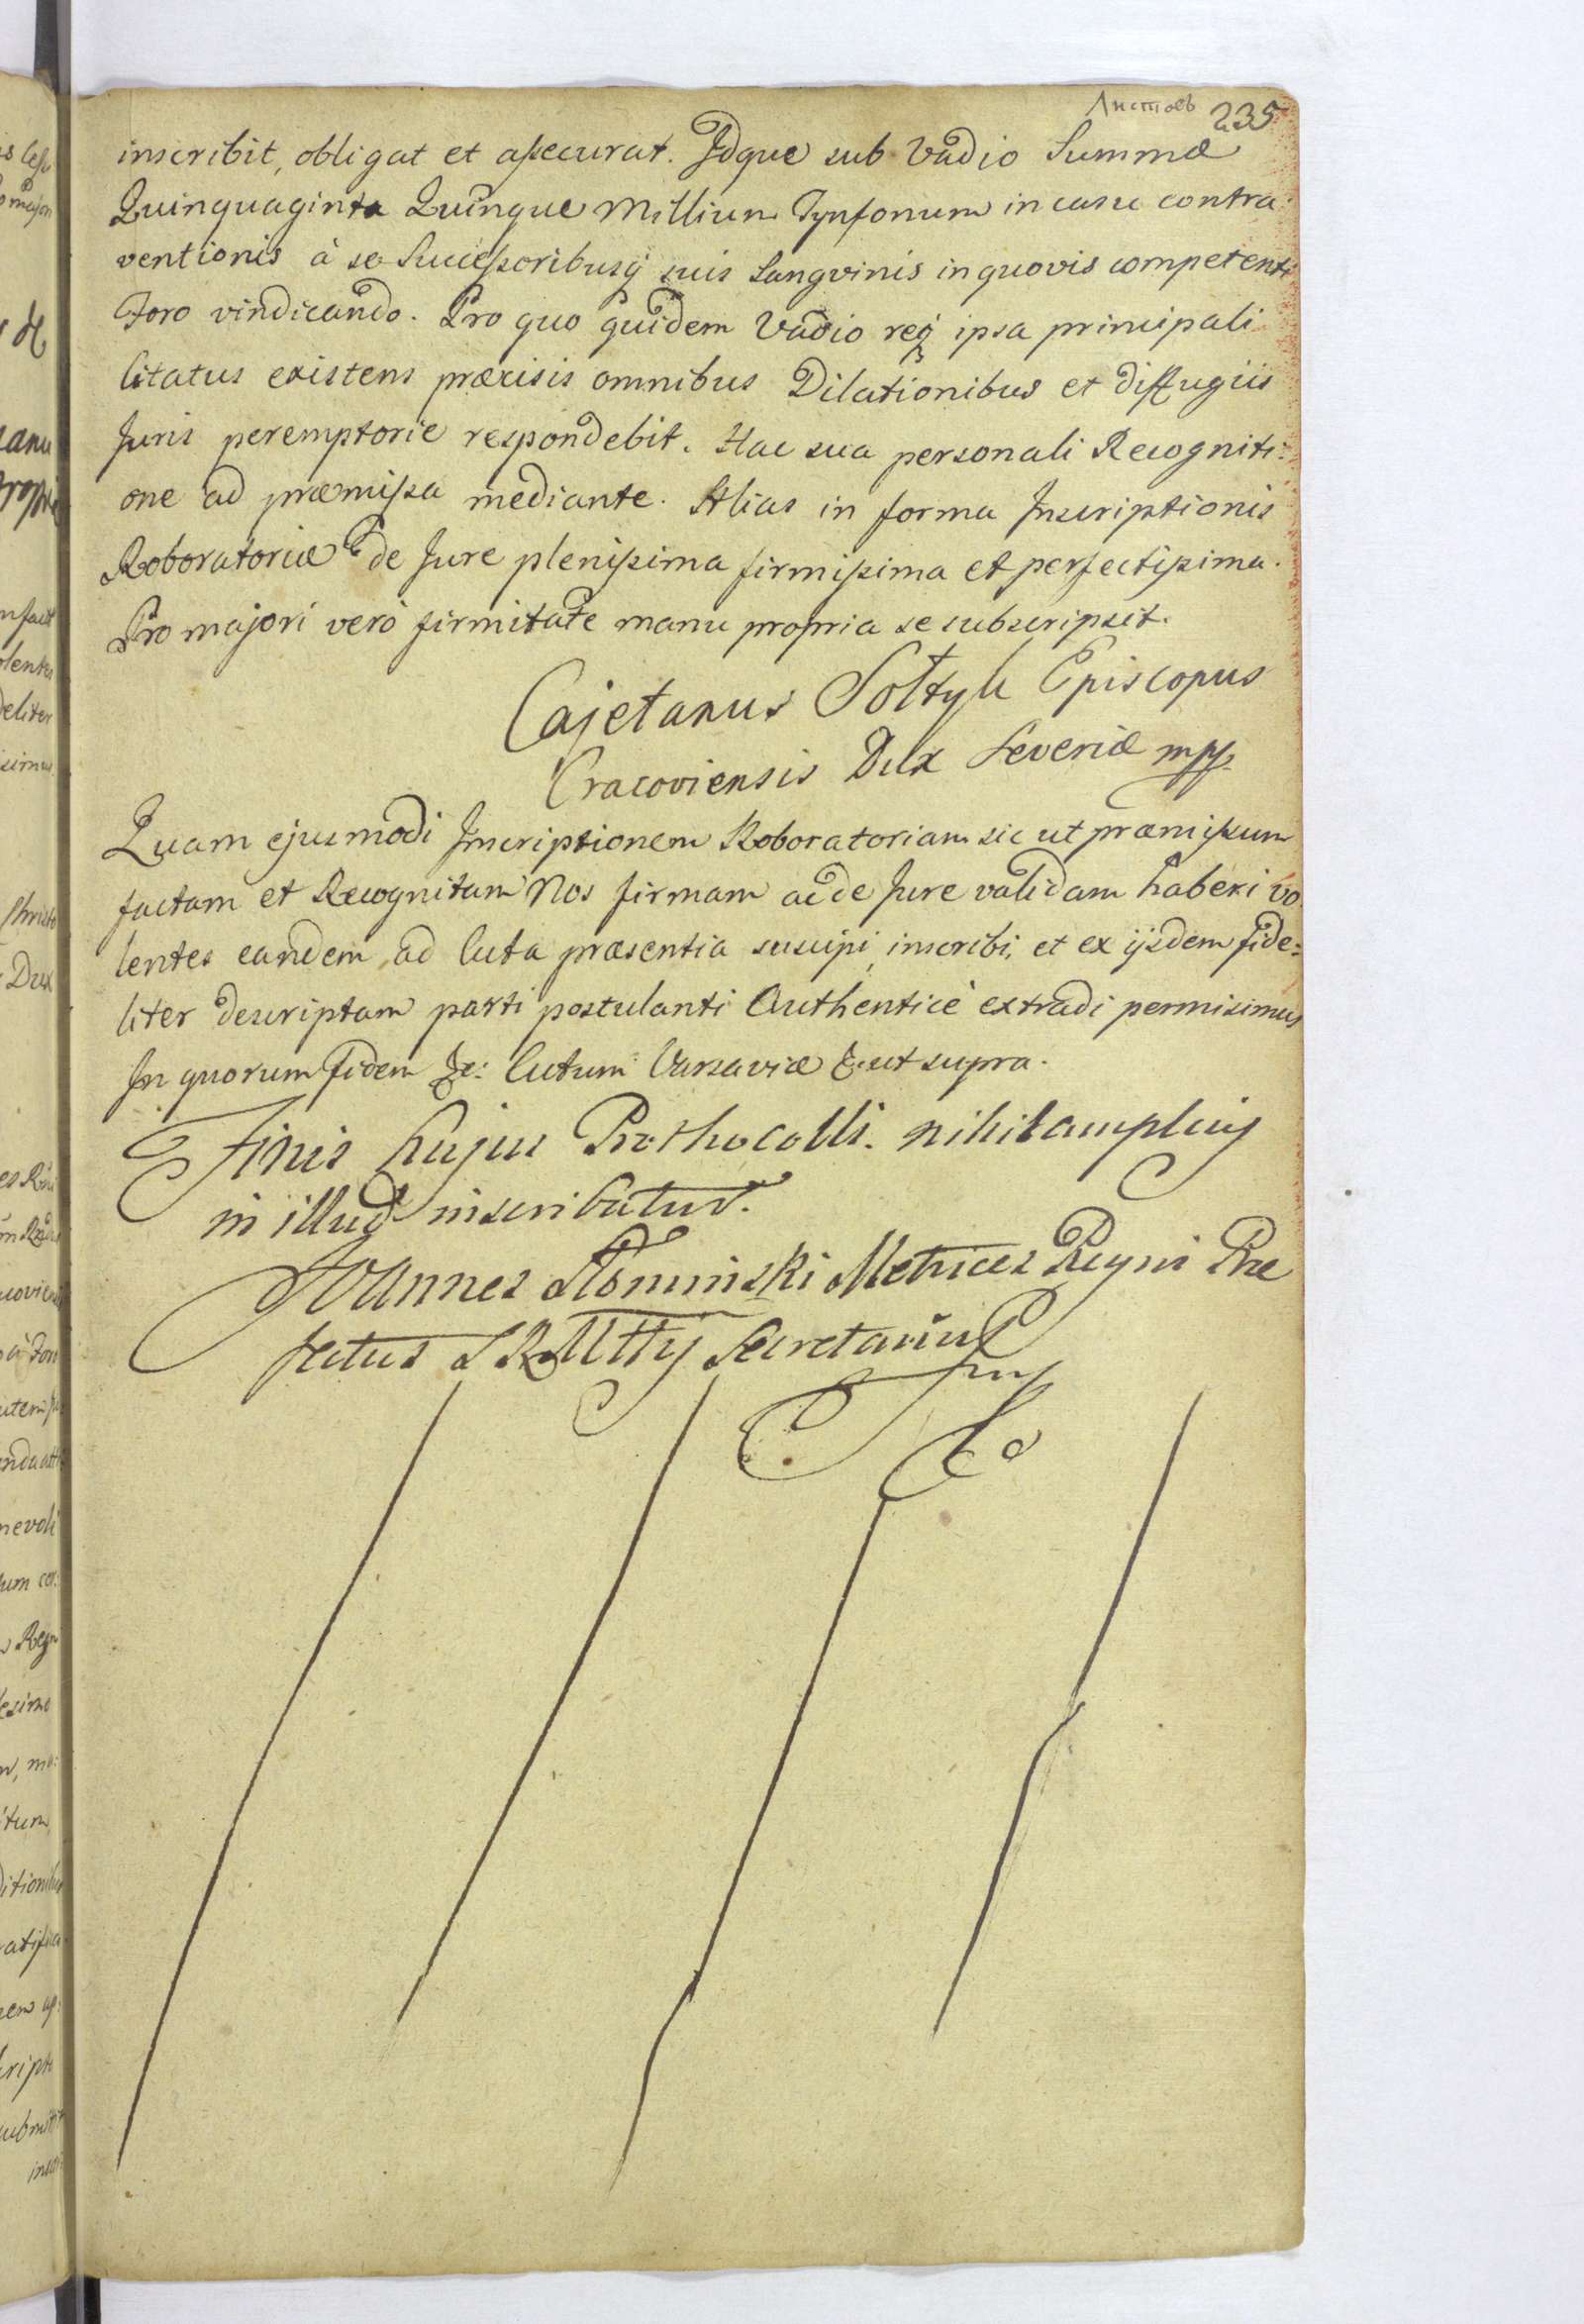 Листовъ 235
inscribit, obligat et assecurat. Idque sub Vadio Summæ
Quinquaginta Quinque Millium Tynfonum in casu contra
ventionis à se Successoribusq suis Sangvinis in quovis competenti
Foro vindicando. Pro quo quidem Vadio req ipsa principali
litatus existens præcisis omnibus Dilationibus et diffugiis
Juris peremptorie respondebit. Hac sua personali Recogniti:
one ad præmissa mediante. Alias in forma Inscriptionis
Roboratoriæ de Jure plenissima firmissima et perfectissima.
Pro majori verò firmitate manu propria se subscripsit.
Cajetanus Sołtyk Episcopus
Cracoviensis Dux Severiæ mpp.
Quam ejusmodi Inscriptionem Roboratoriam sic ut præmissum
factam et Recognitam Nos firmam ac de Jure validam haberi vo
lentes eandem ad Acta præsentia suscipi, inscribi, et ex ijsdem fide:
liter descriptam parti postulanti Authenticè extradi permisimus
In quorum Fidem &c: Actum Varsaviæ &. ut supra.
Finis hujus Prothocolli. nihil amplius
in illud inscribatur.
Joannes Słominski Metrices Regni Præ
fectus S R Mttis Secretarius
mp